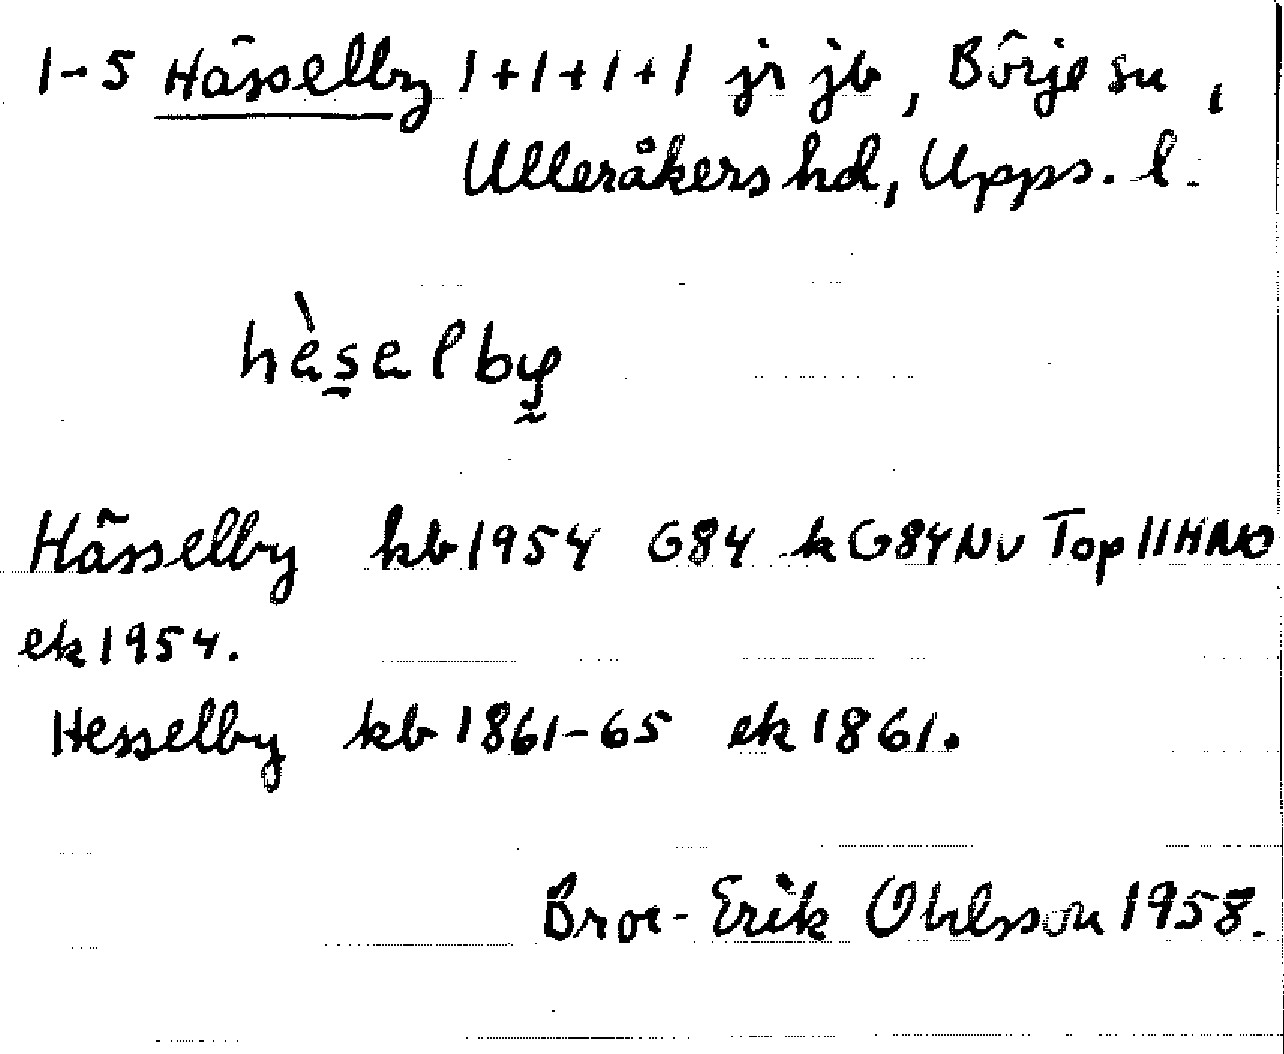 1-5 Hässelby 1+1+1+1 jr jb, Börje sn,
Ulleråkers hd, Upps. l.
hèselby
Hässelby kb 1954 G84 k G84Nv Top 11HNO
ek 1954.
Hesselby kb 1861-65 ek 1861.
Bror-Erik Ohlsson 1958.